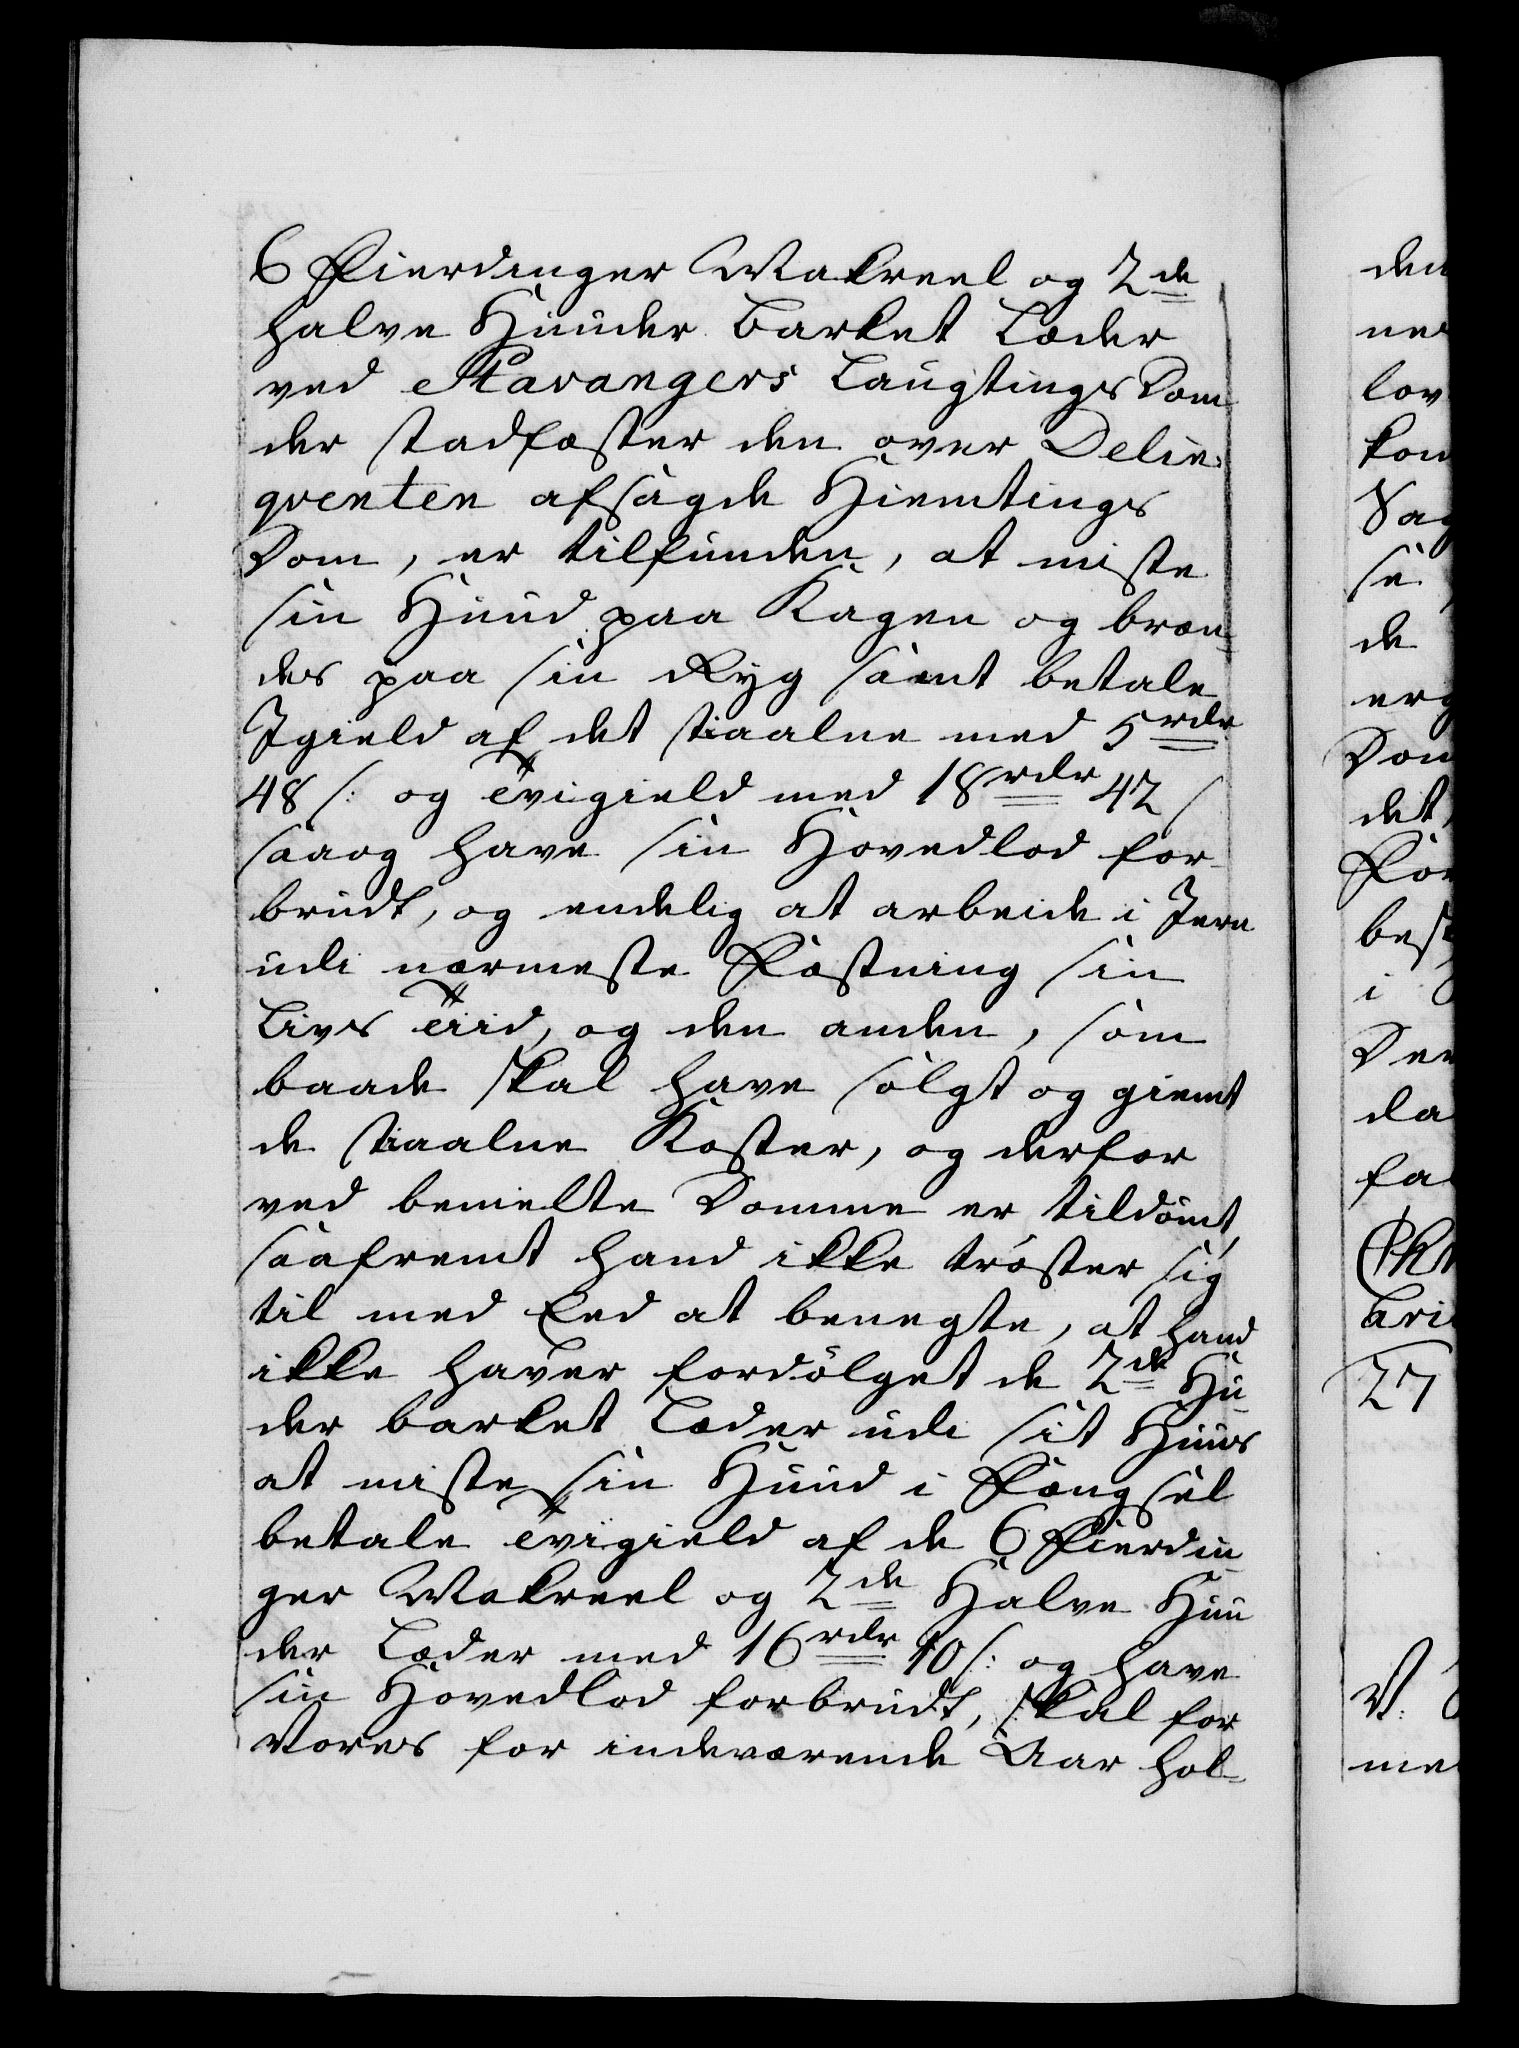 6 Fierdinger Makreel og 2de
halve Huuder barket Læder
ved Stavangers Laugtings Dom
der stadfæster den over Delin-
qventen afsagde Hiemtings
Dom, er tilfunden, at miste
sin Huud paa Kagen og bræn-
des paa sin Ryg samt betale
Igield af det staalne med 5 rdr
48 s: og Tvigield med 18 rdr 42 s
saaog have sin Hovedlod for-
brudt, og endelig at arbeide i Jern
udi nærmeste Fæstning sin
Livs Tiid, og den anden, som
baade skal have solgt og giemt
de staalne Koster, og derfor
ved bemelte Domme er tildømt,
saafremt hand ikke trøster sig
til med Eed at benegte, at hand
ikke haver fordølget de 2de Hu-
der barket Læder udi sit Huus
at miste sin Huud i Fængsel
betale Tvigield af de 6 Fierdin-
ger Makreel og 2de Halve Huu
der Læder med 16 rdr 10 s: og have
sin Hovedlod forbrudt, skal for
Vores for indeværende Aar hol-
den
lov
kom
Sag
se
de
erg
Dom
det
For
best
i
Der
da
fa
Chr
bri
27
V:
me